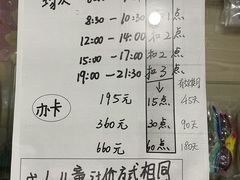 8:30 - 10:30 1点
12:00 - 14:00 扣2点
15:00 - 17:00 扣2点
19:00 - 21:30 扣3点
办卡 有效期
195元 15点 45天
360元 30点 90天
660元 60点 180天
计价方式相同